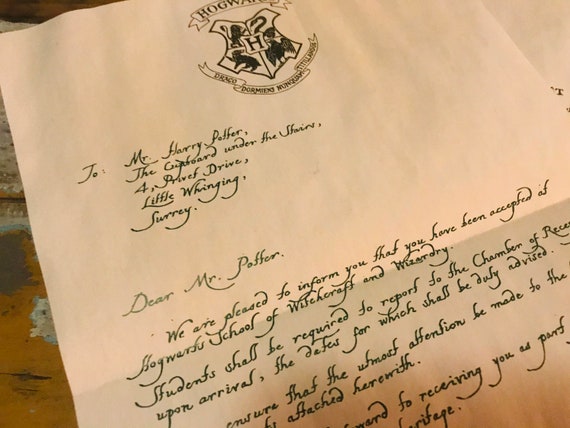 HOGWARTS
H
DRACO DORMIENS NUNQUAM TITILLANDUS
To: Mr. Harry Potter,
The Cupboard under the Stairs,
4, Privet Drive,
Little Whinging,
Surrey.
Dear Mr. Potter.
We are pleased to inform you that you have been accepted at
Hogwarts School of Witchcraft and Wizardry.
Students shall be required to report to the Chamber of Rece
upon arrival, the dates for which shall be duty advised.
ensure that the utmost attention be made to the
attached herewith.
ward to receiving you as part
heritage.